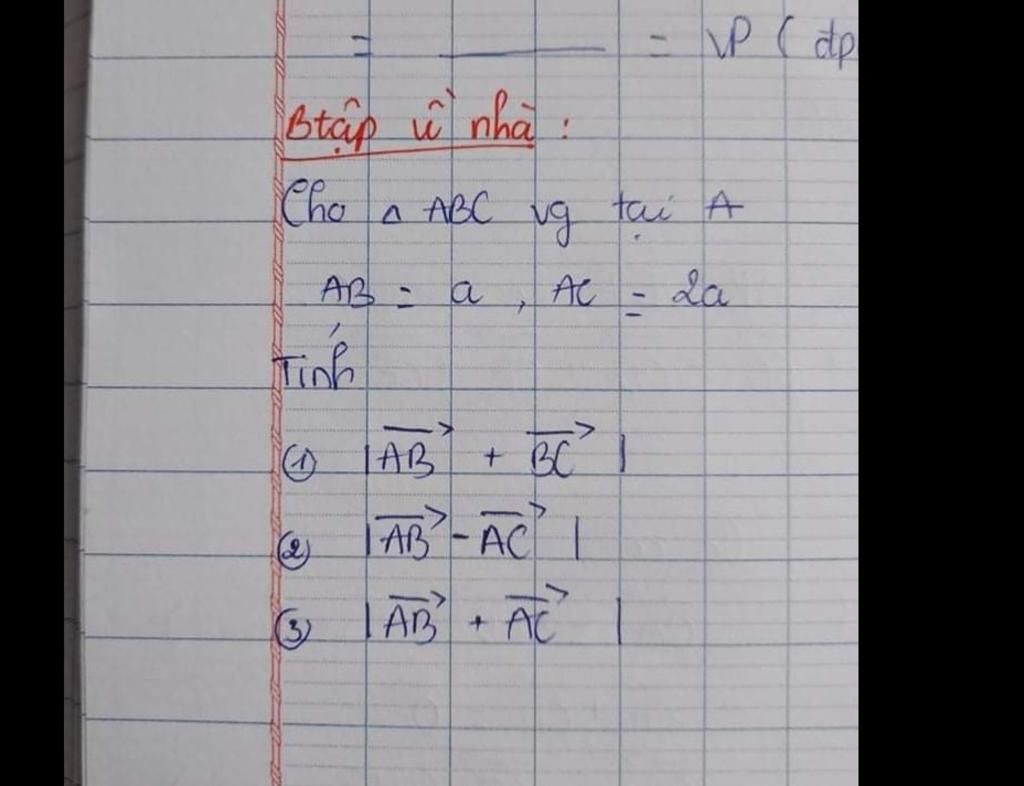 = ――― = VP ( đp
Btập về nhà :
Cho △ ABC vg tại A
AB = a , AC = 2a
Tính
① |\overrightarrow{AB} + \overrightarrow{BC}|
② |\overrightarrow{AB} - \overrightarrow{AC}|
③ |\overrightarrow{AB} + \overrightarrow{AC}|